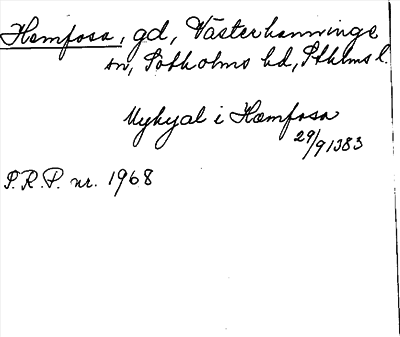 Hemfosa, gd, Västerhanninge
sn, Sotholms hd, Sthlms l.
Nykyal i Hæmfosa
29/9 1383
S.R.P. nr. 1968